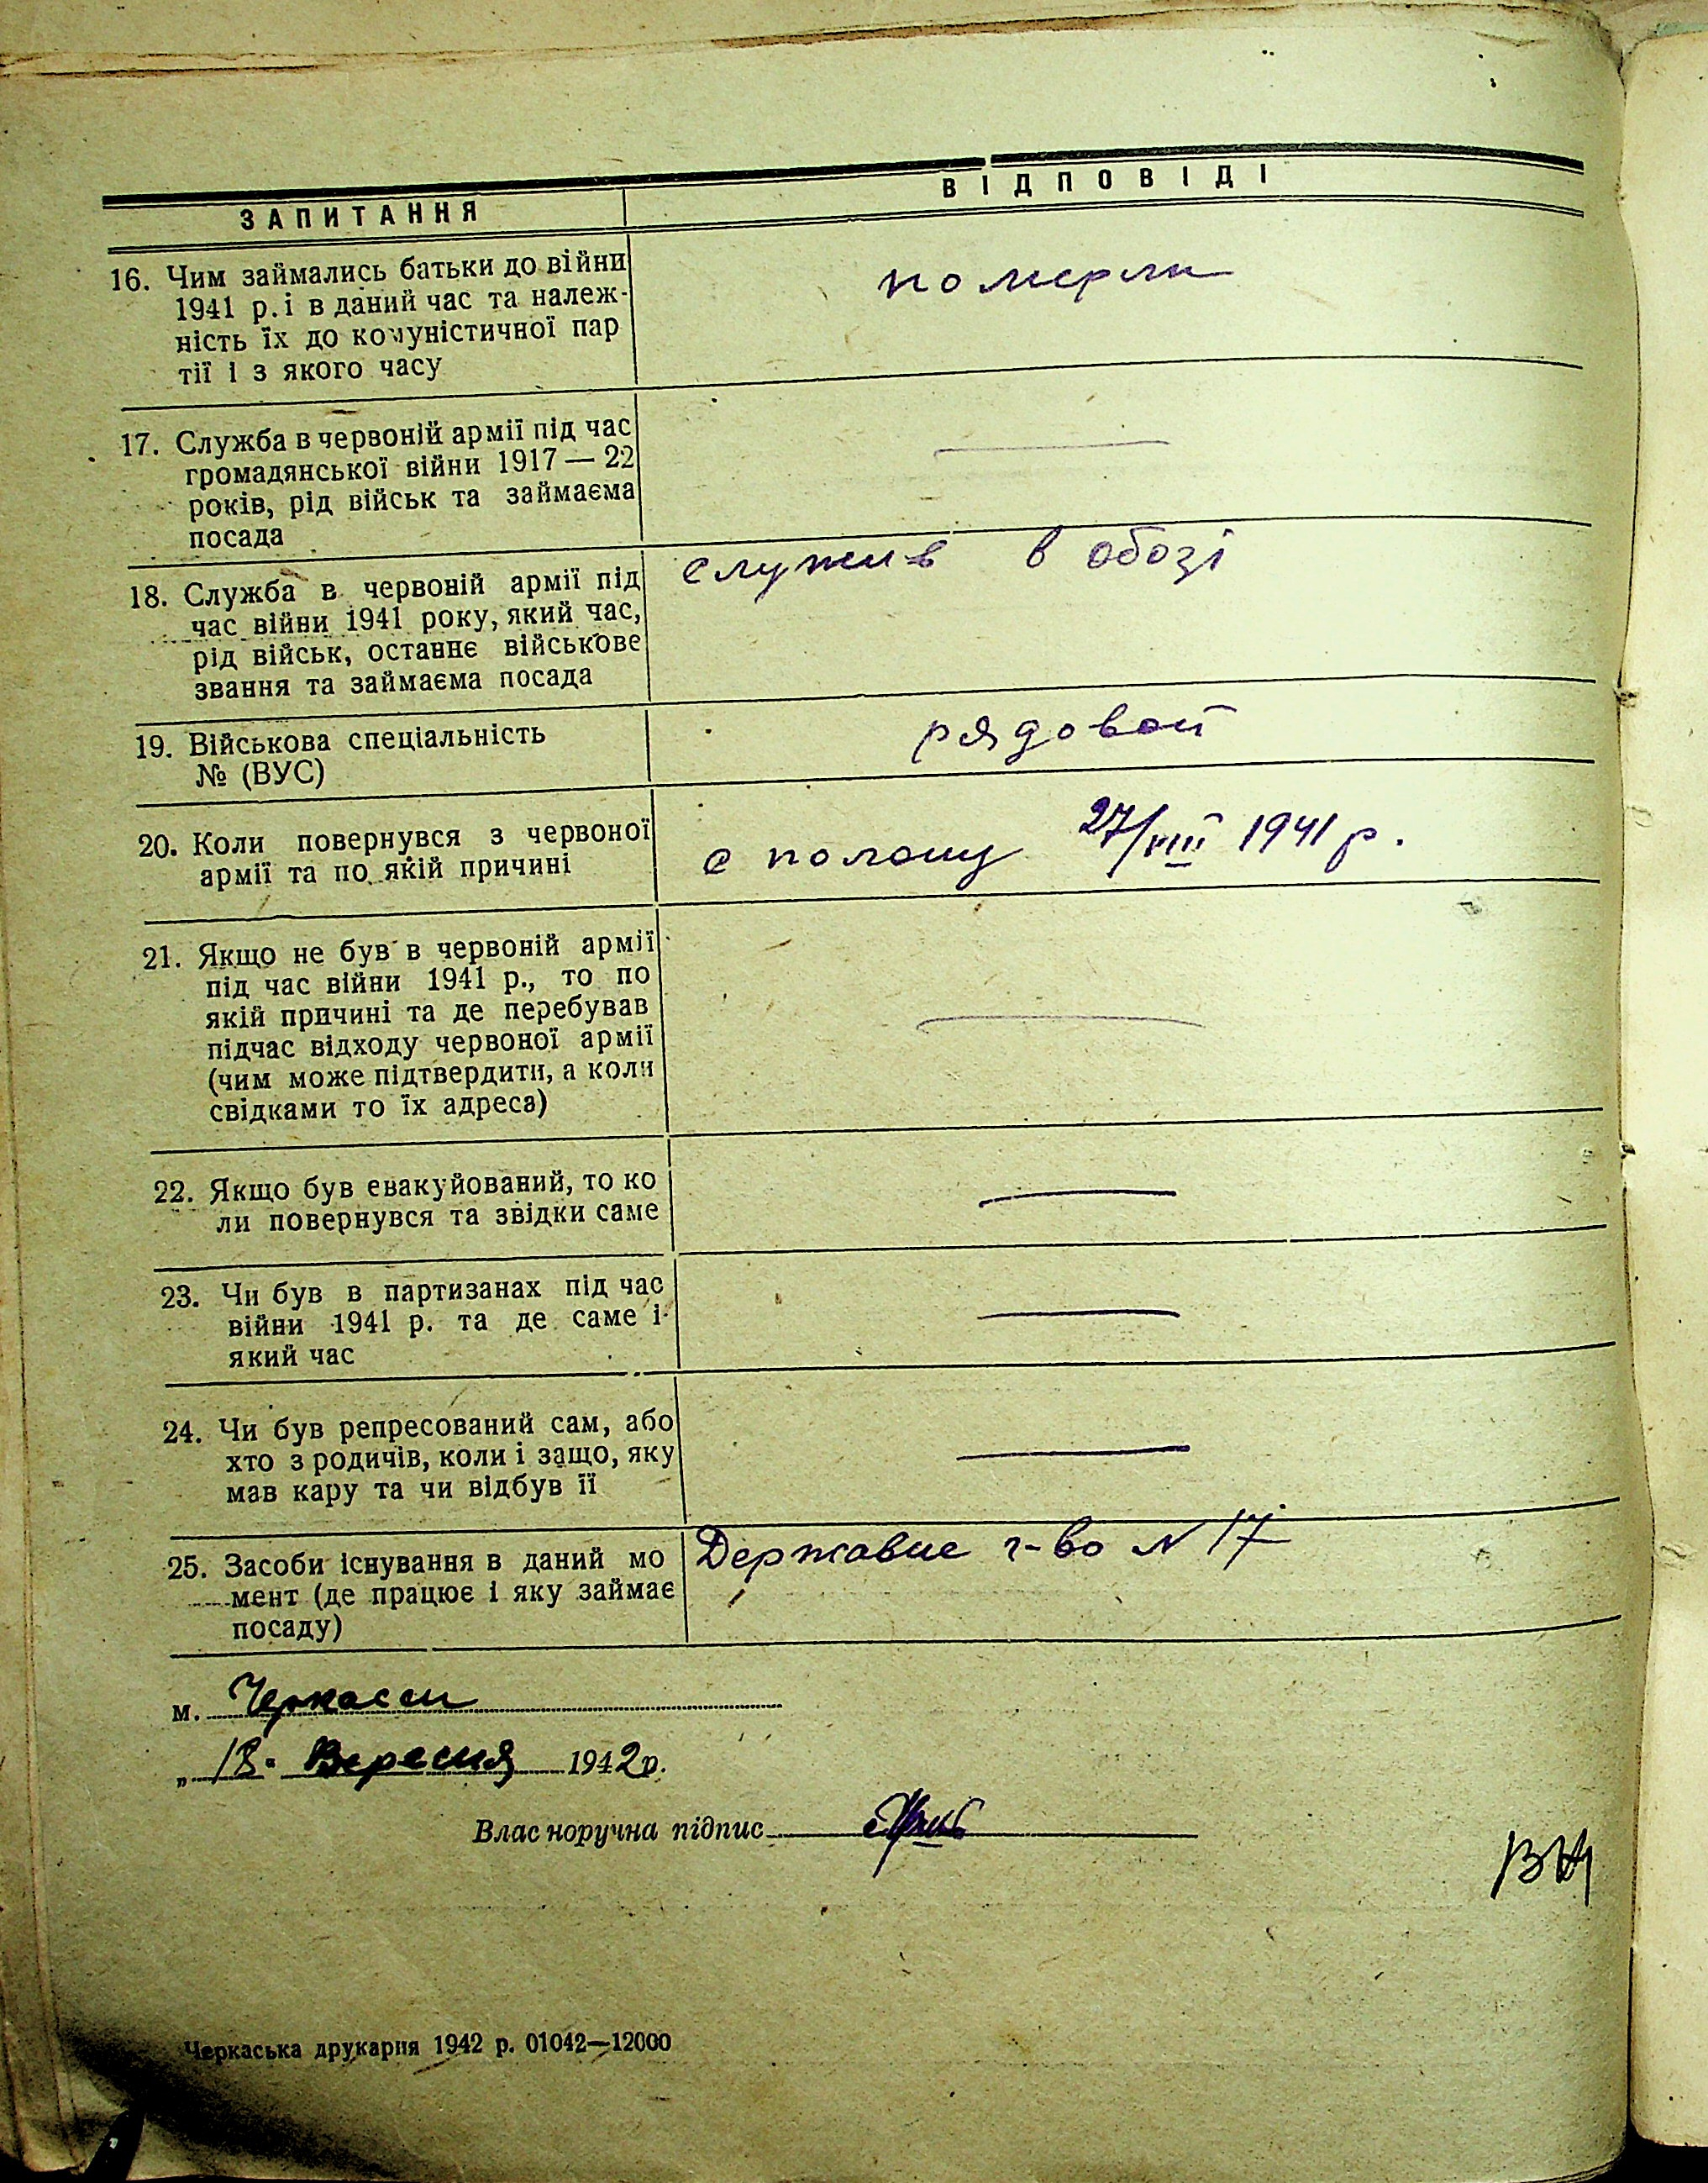 ЗАПИТАННЯ
ВІДПОВІДІ
16. Чим займались батьки до війни
1941 р. і в даний час та належ-
ність їх до комуністичної пар
тії і з якого часу
померли
17. Служба в червоній армії під час
громадянської війни 1917 — 22
років, рід військ та займаєма
посада
—
18. Служба в червоній армії під
час війни 1941 року, який час,
рід військ, останнє військове
звання та займаєма посада
служив в обозі
19. Військова спеціальність
№ (ВУС)
рядовой
20. Коли повернувся з червоної
армії та по якій причині
с полону 27/VIII 1941 р.
21. Якщо не був в червоній армії
під час війни 1941 р., то по
якій причині та де перебував
підчас відходу червоної армії
(чим може підтвердити, а коли
свідками то їх адреса)
—
22. Якщо був евакуйований, то ко
ли повернувся та звідки саме
—
23. Чи був в партизанах під час
війни 1941 р. та де саме і
який час
—
24. Чи був репресований сам, або
хто з родичів, коли і защо, яку
мав кару та чи відбув її
—
25. Засоби існування в даний мо
мент (де працює і яку займає
посаду)
Державне г-во N 17
м. Черкасси
„ 18 " Вересня 1942 р.
Влас норучна підпис
Черкаська друкарня 1942 р. 01042—12000